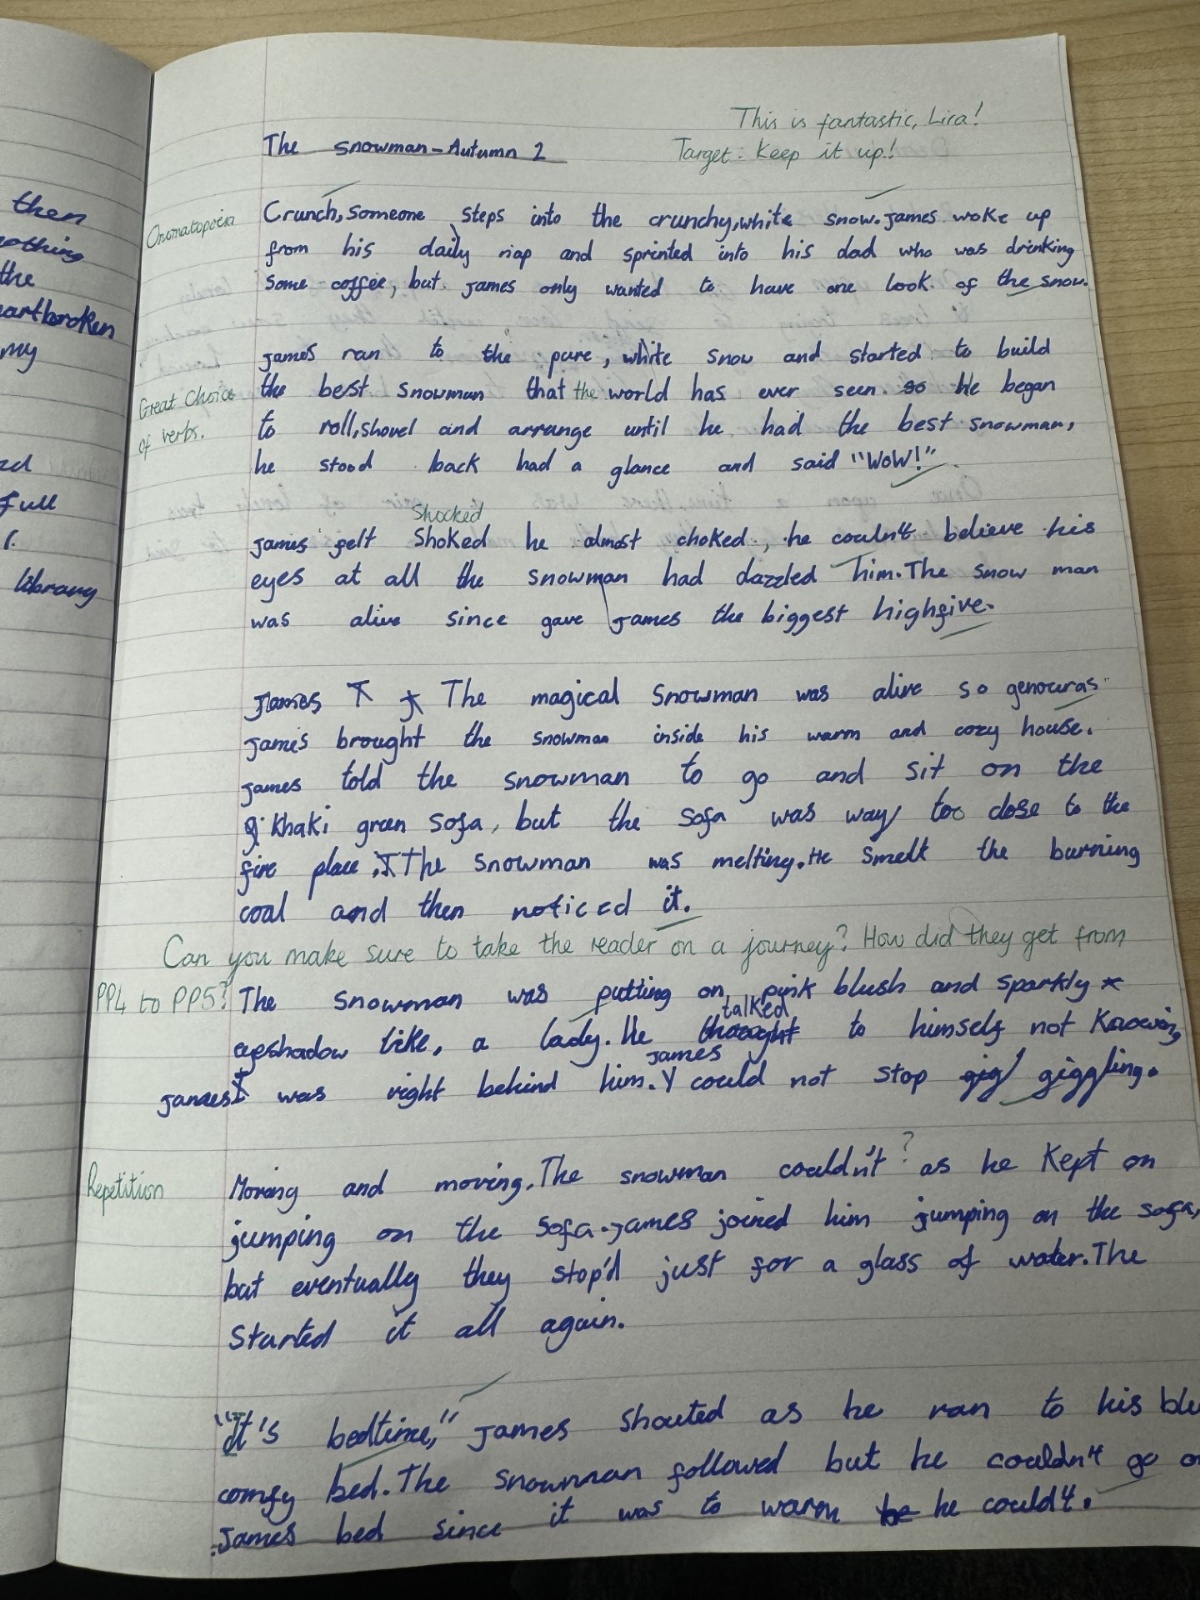 This is fantastic, Lira!
The snowman - Autumn 2
Target: Keep it up!
then
nothing
the
heartbroken
my
full
library
Onomatopoeia
Crunch, someone steps into the crunchy, white snow. james woke up
from his daily nap and sprinted into his dad who was drinking
some coffee, but james only wanted to have one look of the snow.
james ran to the pure, white snow and started to build
Great choice
of verbs.
the best snowman that the world has ever seen. so He began
to roll, shovel and arrange until he had the best snowman,
he stood back had a glance and said "WOW!"
Shocked
james felt Shoked he almost choked, he couln't believe his
eyes at all the snowman had dazzled him. The snow man
was alive since gave james the biggest highfive.
James The magical Snowman was alive so genouras
james brought the snowman inside his warm and cozy house.
james told the snowman to go and sit on the
Khaki green sofa, but the sofa was way too close to the
fire place. The snowman was melting. He smelt the burning
coal and then noticed it.
Can you make sure to take the reader on a journey? How did they get from
PP4 to PP5?
The snowman was putting on pink blush and sparkly
talked
eyeshadow like, a lady. He thought to himself not knowing
james
james I was right behind him. I could not stop gig giggling.
Repetition
Moving and moving. The snowman couldn't ? as he Kept on
jumping on the sofa. james joined him jumping on the sofa,
but eventually they stop'd just for a glass of water. The
Started it all again.
"It's bedtime," james shouted as he ran to his blu
comfy bed. The snowman followed but he couldn't go on
James bed since it was to warm he he could't.